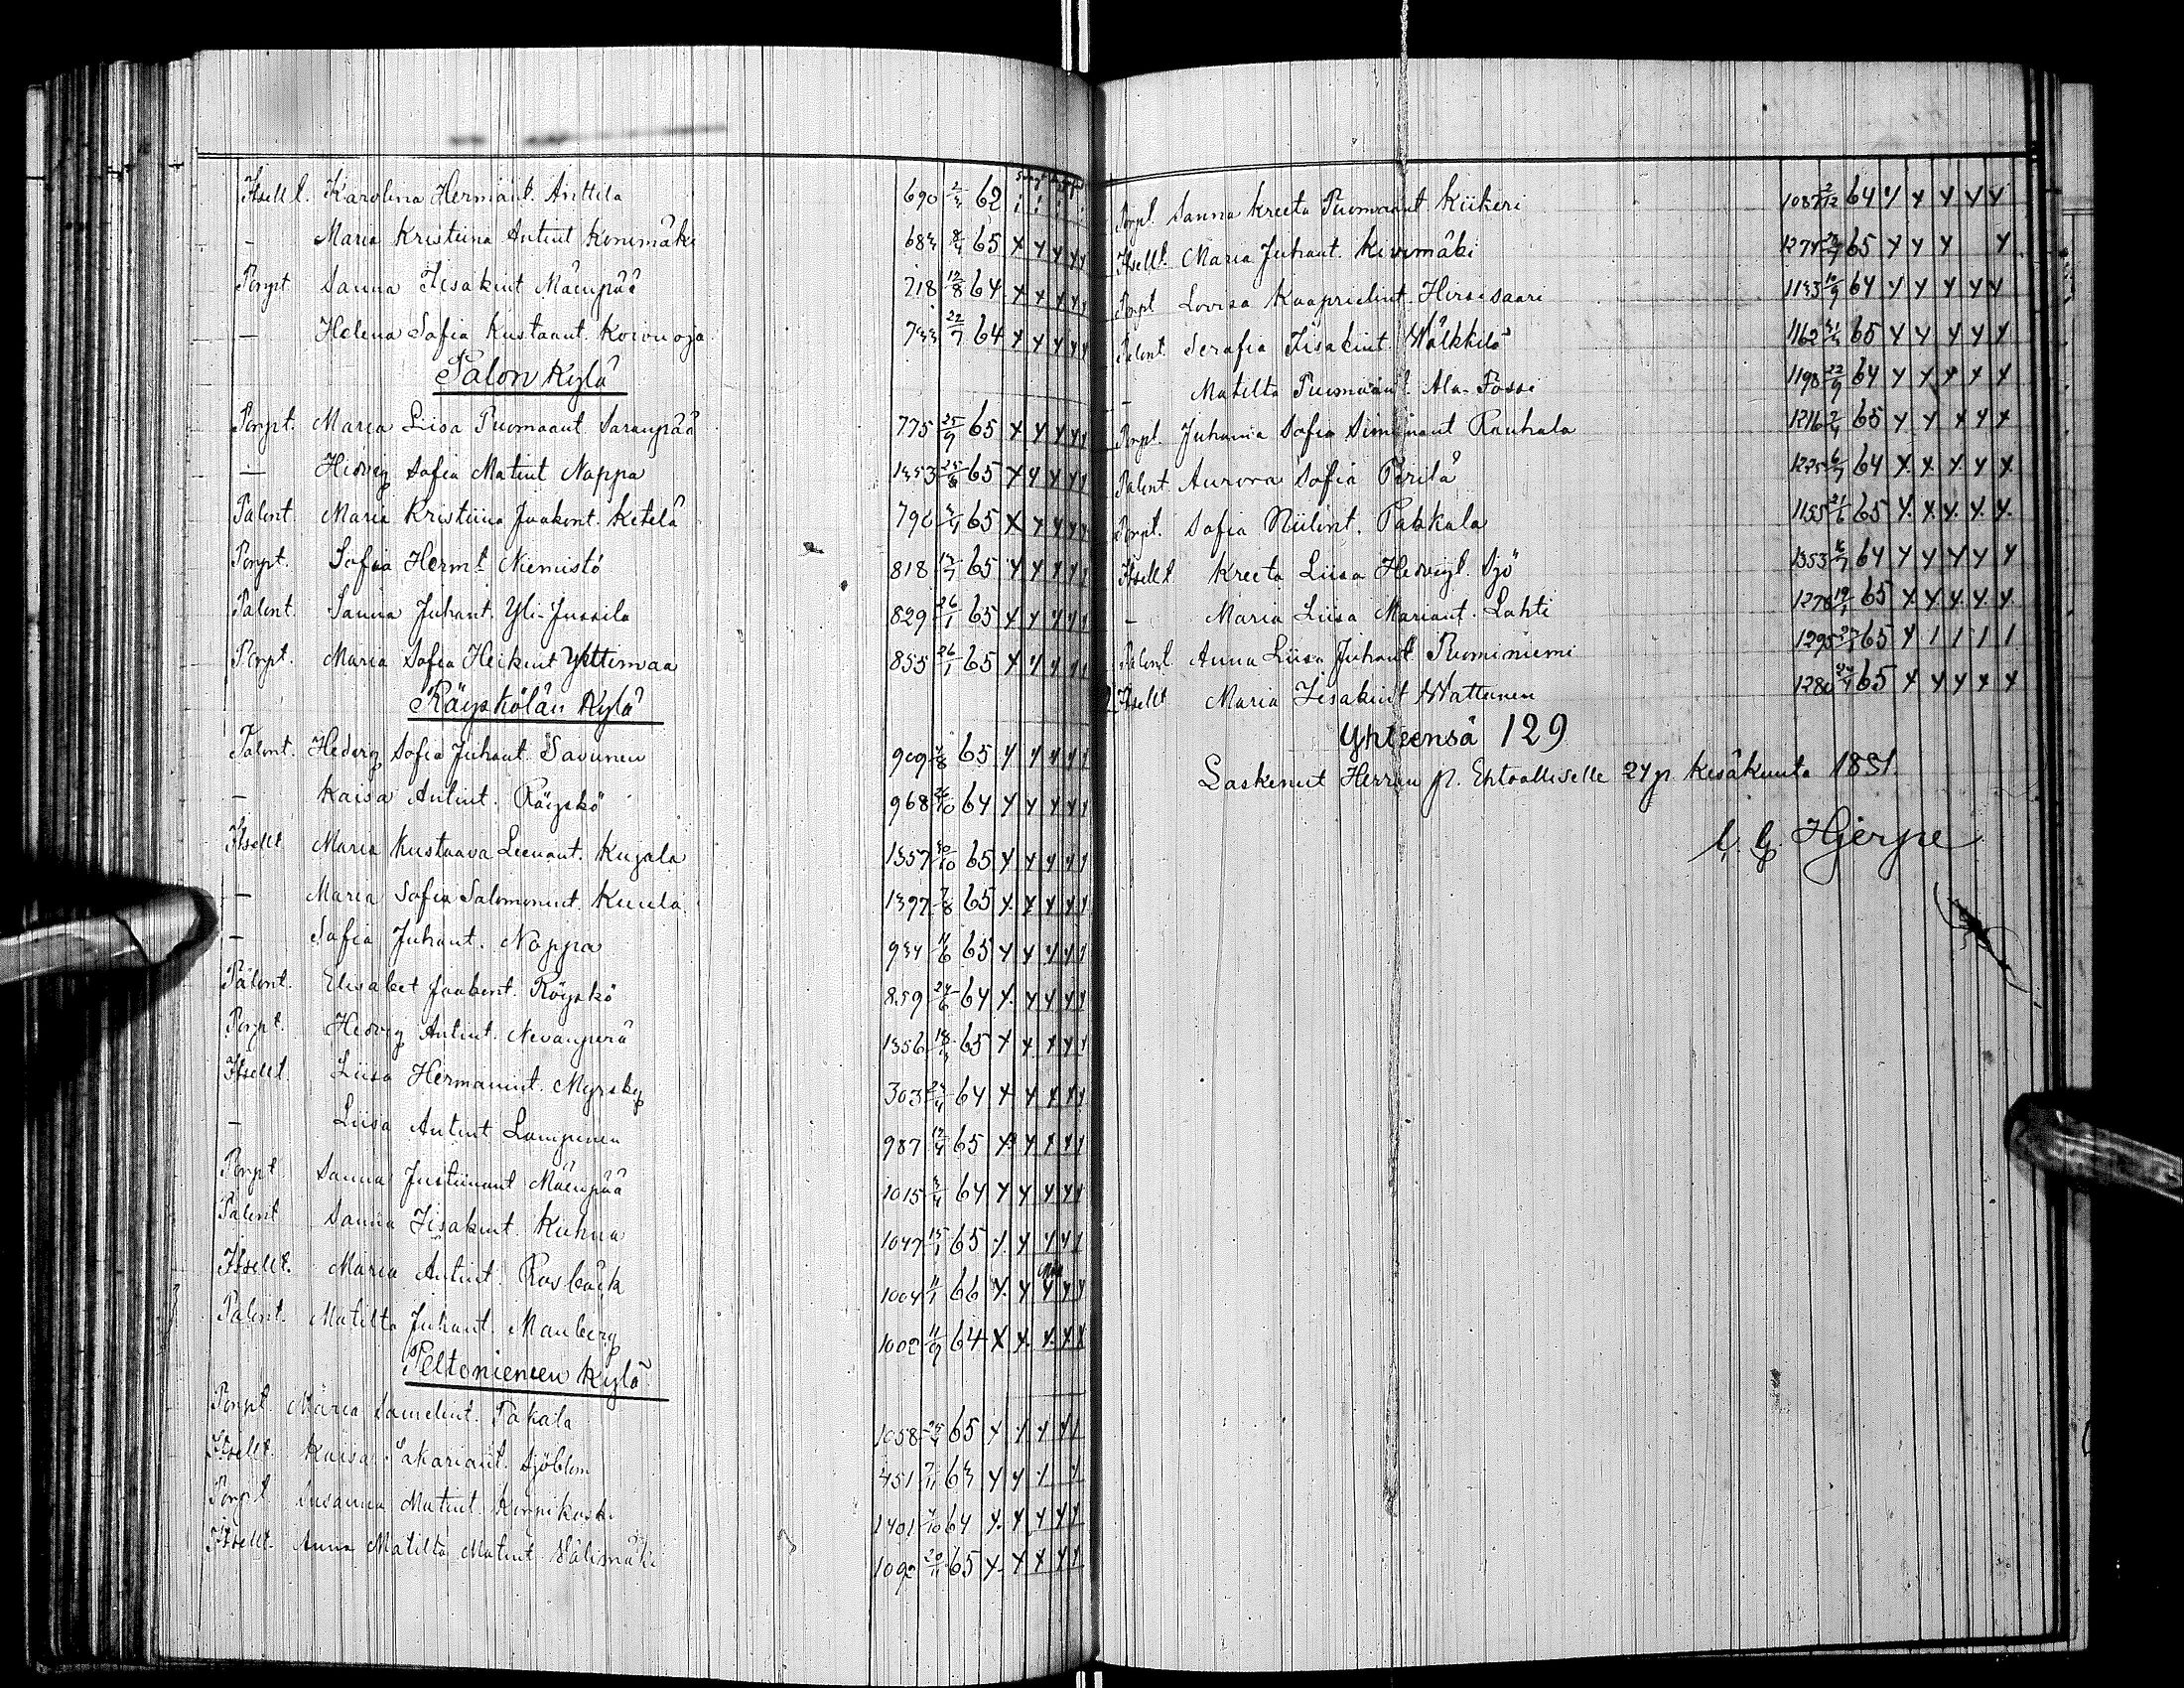 Itsellt. Karolina Hermant. Anttila 690 62
– Maria Kristiina Antint Konimäki 65 y y y y y
Porpt Sanna Iisakint Mäenpää 718 12/8 64 y y y y y
– Helena Sofia Kustaant. Koivuoja 733 22/7 64 y y y y y
Palon Kylä
Porpt. Maria Liisa Tuomaant. Saranpää 775 25/9 65 y y y y y
– Hedvig Sofia Matint Nappa 65 y y y y y
Talont. Maria Kristiina Jaakont. Ketelä 65 y y y y y
Porpt. Sofia Hermt Niemistö 818 65 y y y y y
Talont. Sanna Juhant. Yli-Jussila 829 26/1 65 y y y y y
Porpt. Maria Sofia Heikint Ylittimaa 855 26/1 65 y y y y y
Räyskölän Kylä
Talont. Hedvig Sofia Juhant. Savunen 909 65 y y y y y
– Kaisa Antint. Räyskö 968 64 y y y y y
Itsellt Maria Kustaava Leenant. Kujala 1357 30/10 65 y y y y y
– Maria Sofia Salomonint. Kuula 1397 7/8 65 y y y y y
– Sofia Juhant. Nappa 934 65 y y y y y
Talont. Elisabet Jaakont. Räyskö 859 24/6 64 y y y y y
Porpt. Hedvig Antint. Nevanperä 1356 65 y y y y y
Itsellt. Liisa Hermannint. Myrsky 303 64 y y y y y
– Liisa Antint Lampinen 987 65 y y y y y
Porpt. Sanna Justiinant Mäenpää 1015 64 y y y y y
Talont Sanna Iisakint. Kuhna 1047 15/1 65 y y y y y
Itsellt. Maria Antint. Rosbäck 1004 66 y y y y y
Talont. Matilta Juhant. Manberg 1002 11/9 64 y y y y y
Peltoniemen Kylä
Porpt. Maria Samelint. Takala 1058 65 y y y y y
Itsellt. Kaisa Sakariant. Sjöblom 451 63 y y y y
Porpt. Susanna Matint. Kornikoski 1401 64 y y y y y
Itsellt. Anna Matilta Matint. Välimäki 1092 65 y y y y y
Porpt. Sanna Kreeta Tuomaant Kiikeri 1087 2/12 64 y y y y y
Itsellt. Maria Juhant. Kivimäki 65 y y y y
Porpt Lovisa Kaaprielint. Hirsisaari 64 y y y y y
Talont. Serafia Iisakint. Wälkkilä 1162 65 y y y y y
– Matilta Tuomaant. Ala-Fossi 1198 22/9 64 y y y y y
Porpt. Juhanna Sofia Simunant Rauhala 1216 65 y y y y y
Talont Aurora Sofia Perilä 1225 64 y y y y y
Porpt. Sofia Niilont. Pakkala 1155 21/6 65 y y y y y
Itsellt Kreeta Liisa Hedvigt. Sjö 1353 64 y y y y y
– Maria Liisa Mariant. Lahti 1278 65 y y y y y
Talont Anna Liisa Juhant Tuominiemi 1295 65 y 1 1 1 1
Itsellt Maria Iisakint Wattunen 65 y y y y y
Yhteensä 129
Laskenut Herran p. Ehtoolliselle 24 p. Kesäkuuta 1881.
C. G. Hjerpe